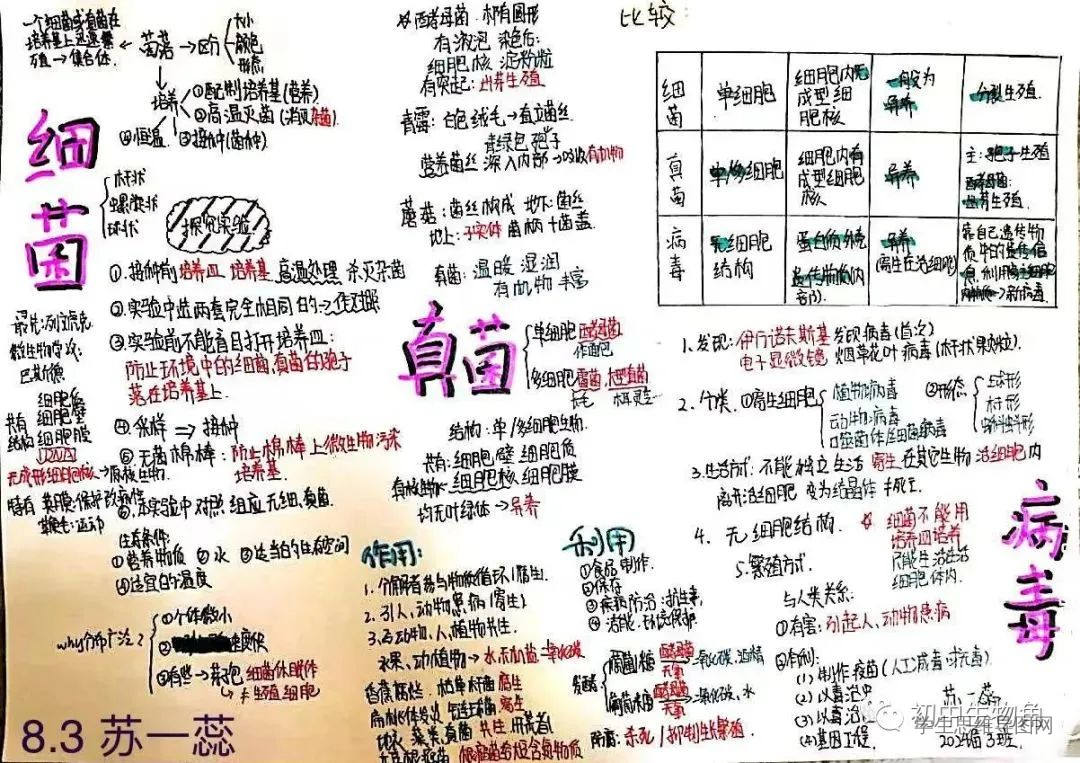 一个细菌或真菌在
培养基上迅速繁
殖→集合体.
菌落→区分
大小
颜色
形态
培养
①配制培养基(营养)
②高温灭菌(消灭杂菌)
④恒温
③接种(菌种).
细菌
杆状
螺旋状
球状
探究实验
①.接种前 培养皿 培养基 高温处理 杀灭杂菌
②.实验中选两套完全相同的→作对照
③.实验前不能盲目打开培养皿:
防止环境中的细菌,真菌的孢子
落在培养基上.
④采样⇒接种
⑤无菌棉棒:防止棉棒上微生物污染
培养基.
⑥.实验中对照组应无细,真菌.
最先:列文虎克
微生物学之父:
巴斯德
共有结构
细胞质
细胞壁
细胞膜
DNA
无成形细胞核→原核生物.
特有 荚膜:保护
鞭毛:运动
生存条件:
①营养物质 ②水 ③适当的生存空间
④适宜的温度
why分布广泛?
①个体微小
②速度快
③有些→芽孢 细菌休眠体
≠生殖细胞
8.3 苏一蕊
☆酵母菌.椭圆形
有液泡 染色后:
细胞核 淀粉粒
有突起:出芽生殖
青霉:白色绒毛→直立菌丝
青绿色孢子
营养菌丝 深入内部→吸收有机物
蘑菇:菌丝构成 地下:菌丝
地上:子实体 菌柄+菌盖
真菌:温暖 湿润
有机物丰富
真菌
单细胞 酵母菌
作面包
多细胞 霉菌,大型真菌
结构:单/多细胞生物.
共有:细胞壁 细胞质
真核生物←细胞核 细胞膜
均无叶绿体→异养
作用:
1.分解者参与物质循环(腐生).
2.引人,动物患病(寄生)
3.与动物、人,植物共生.
利用
①食品制作.
②保存
③疾病防治:抗生素,
④清洁能源,环境保护
发酵
葡萄糖 酵母菌 无氧→二氧化碳、酒精
葡萄糖 酵母菌→二氧化碳、水
防腐:杀死/抑制生长繁殖.
比较:
细菌 单细胞 细胞内无成型细胞核 一般为异养 分裂生殖.
真菌 单/多细胞 细胞内有成型细胞核 异养 主:孢子生殖 酵母菌:出芽生殖.
病毒 无细胞结构 蛋白质外壳 遗传物质(内容部). 异养(寄生在活细胞) 靠自己遗传物质中的遗传信息,利用寄主细胞内物质→新病毒.
1.发现:伊万诺夫斯基 发现病毒(首次)
电子显微镜 烟草花叶病毒(杆状颗粒).
2.分类.①寄生细胞
植物病毒
动物病毒
噬菌体/细菌病毒
②形态
球形
杆形
蝌蚪形
3.生活方式:不能独立生活 寄生在其它生物 活细胞内
离开活细胞 变为结晶体
4.无细胞结构.
☆细菌不能用
培养皿培养
只能生活在活
细胞体内.
5.繁殖方式.
病毒
与人类关系:
①有害:引起人、动物患病
②有利:
(1)制作疫苗(人工减毒 或无毒).
(2)以毒治虫
(3)以毒治
(4)基因工程.
苏一蕊
初中生物角
学生思维导图网